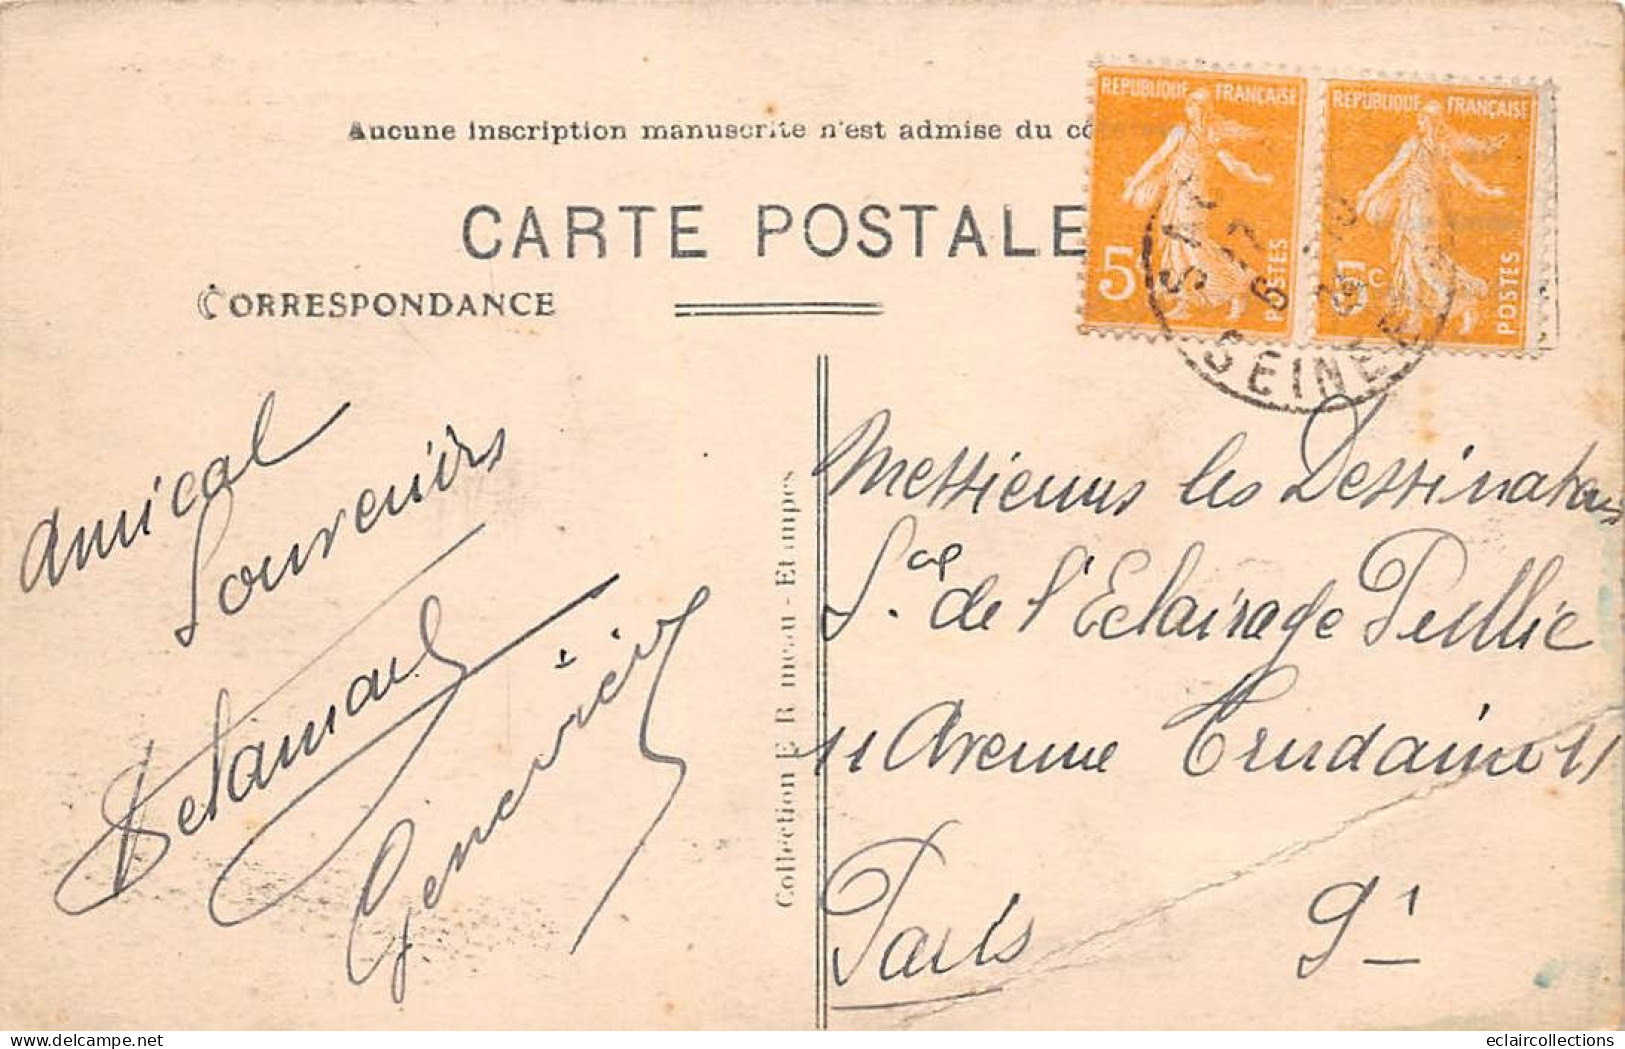 Aucune inscription manuscrite n'est admise du
CARTE POSTALE
CORRESPONDANCE
REPUBLIQUE FRANÇAISE
5
POSTES
REPUBLIQUE FRANÇAISE
5c
POSTES
SEINE
Amical
Souvenirs
Delamare
Geneviève
Collection E. R meau - Etampes
Messieurs les Dessinateurs
Sté de l'Eclairage Public
11 Avenue Trudaine 11
Paris 9e
www.delcampe.net
eclaircollections